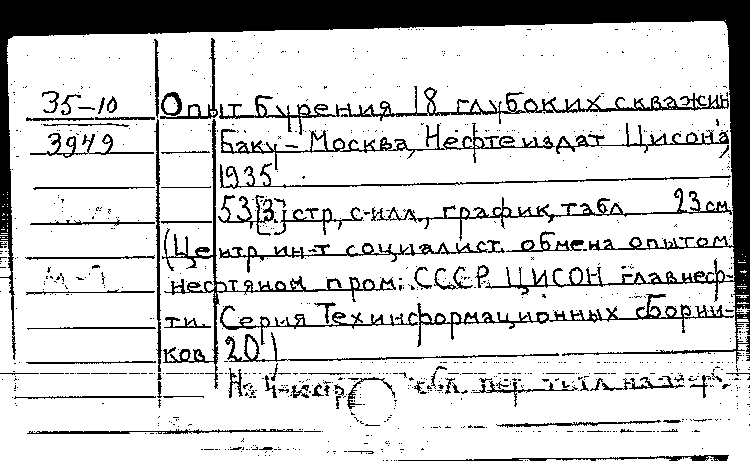 35-10 Опыт бурения 18 глубоких скважин
3949 Баку-Москва, Нефтеиздат Цисона,
1935.
53,[3] стр, с илл., график, табл 23 см
(Центр. ин-т социалист. обмена опытом
нефтяном пром: СССР ЦИСОН главнеф-
ти. Серия Техинформационных сборни-
ков 20)
На 4-й стр обл. пер. титл.